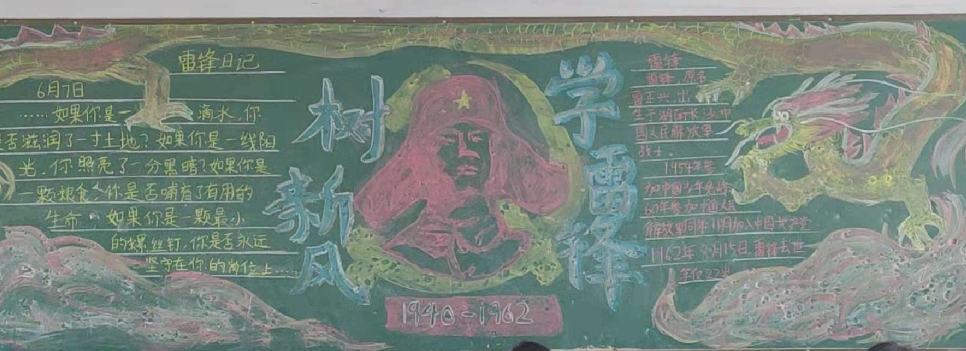 雷锋日记
6月7日
……如果你是一 滴水，你
是否滋润了一寸土地？如果你是一线阳
光，你照亮了一分黑暗？如果你是
一颗粮食，你是否哺育了有用的
生命。如果你是一颗最小
的螺丝钉，你是否永远
坚守在你的岗位上……
树新风
学雷锋
1940-1962
雷锋
雷锋，原名
雷正兴，出
生于湖南长沙，中
国人民解放军
战士。
1954年
加中国少年先锋
60年参加中国人民
解放军同年11月加入中国共产党
1962年8月15日雷锋去世
年仅22岁